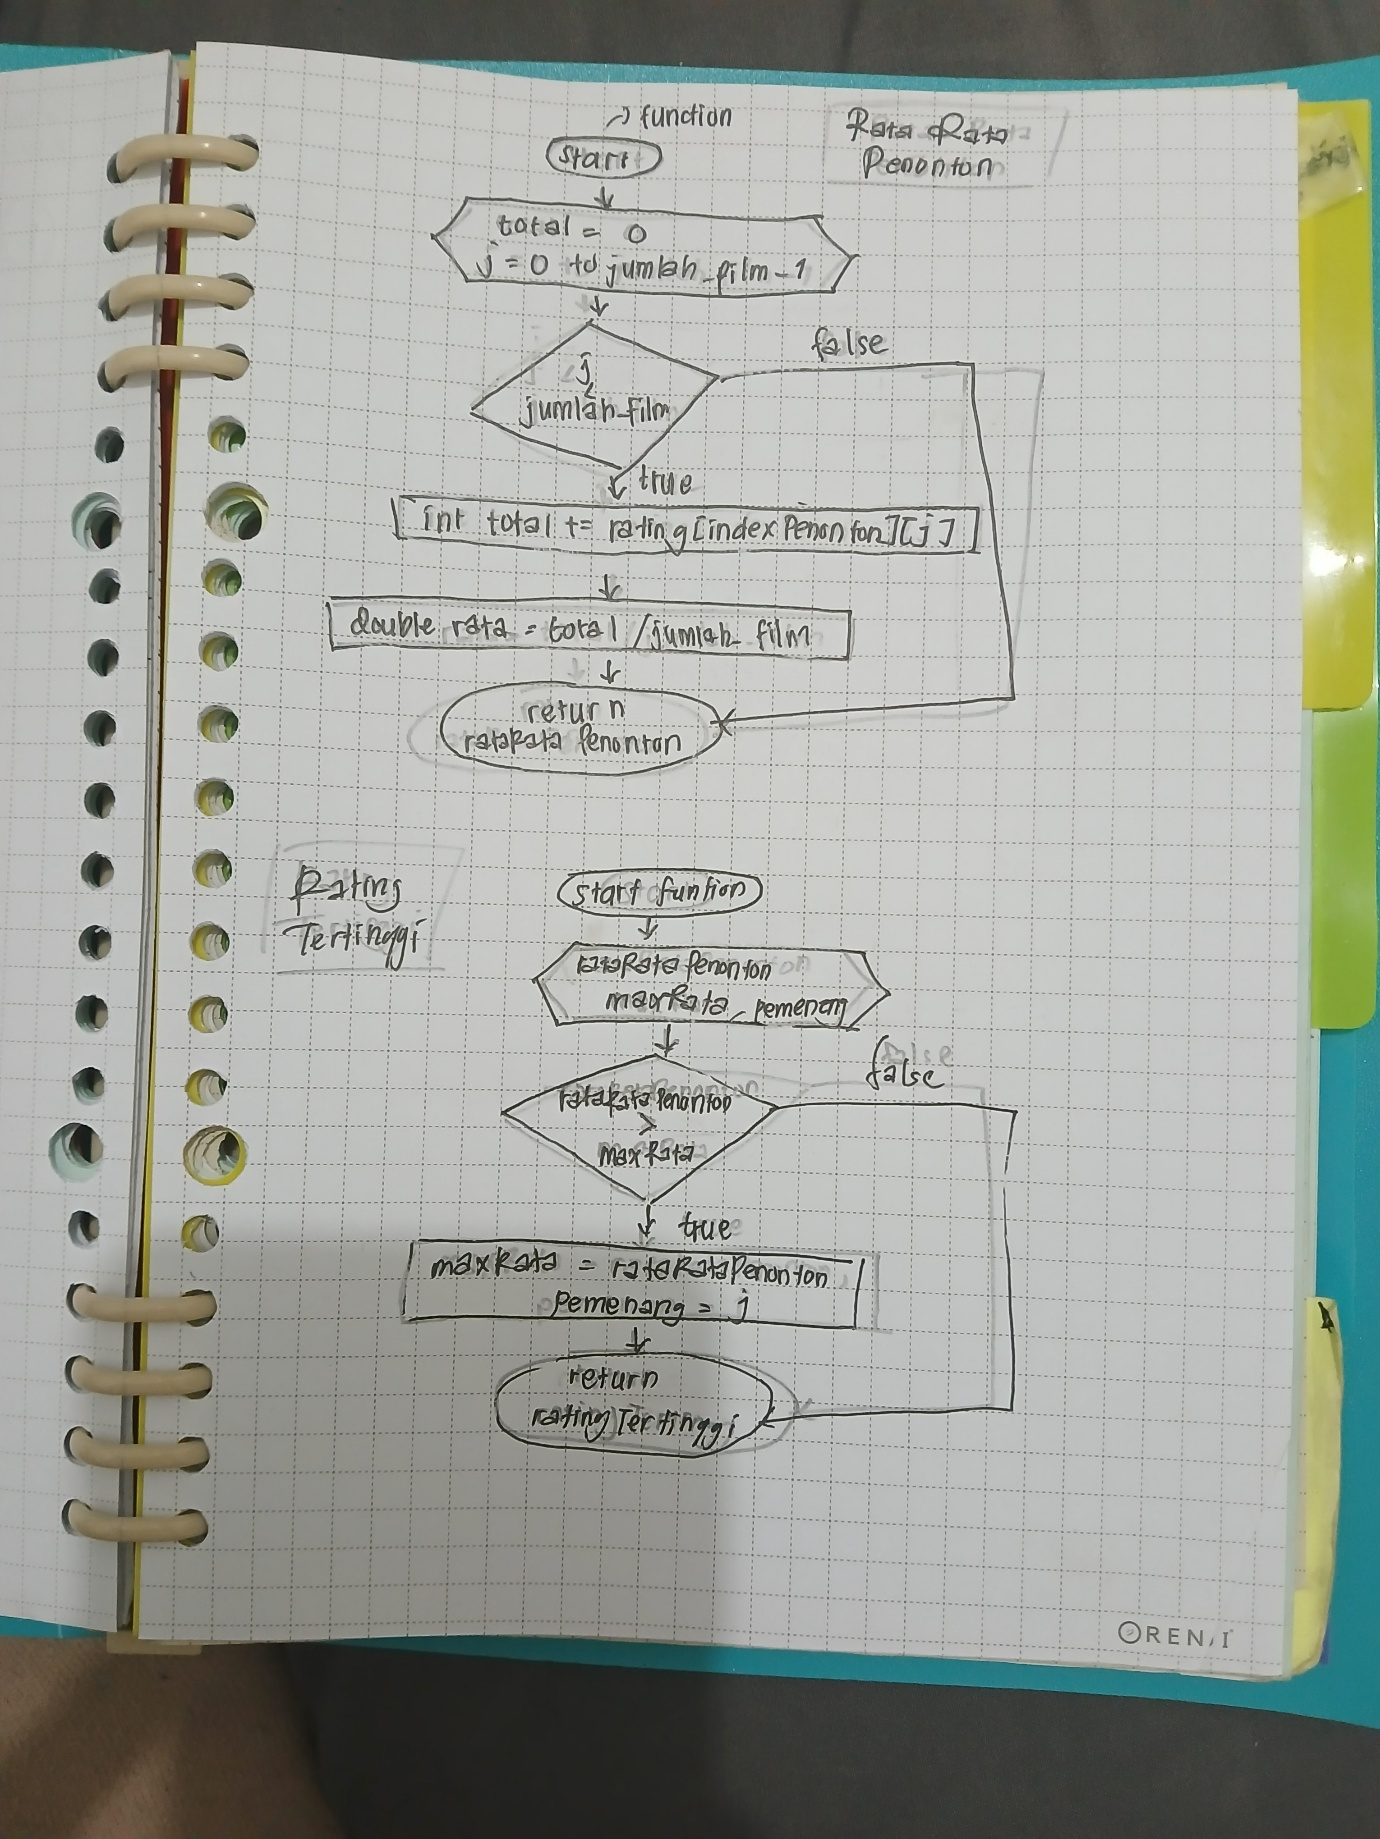 → function
Rata Rata
Penonton
start
total = 0
j = 0 to jumlah_film-1
j
<
jumlah_film
false
true
int total += rating[indexPenonton][j]
double rata = total / jumlah_film
return
rataRata Penonton
Rating
Tertinggi
start funtion
rataRata Penonton
maxRata, pemenang
rataRata Penonton
>
maxRata
false
true
maxRata = rataRataPenonton
pemenang = j
return
rating Tertinggi
ORENJI